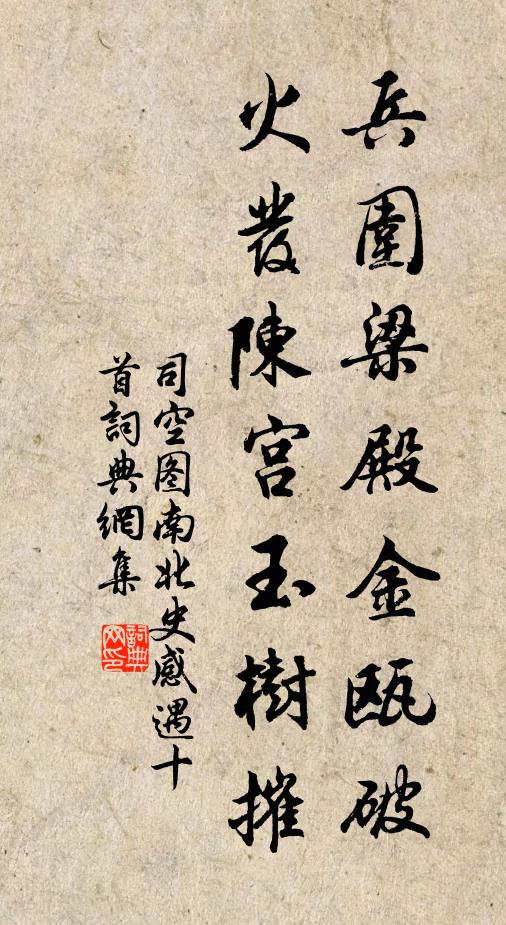 兵圍梁殿金瓯破
火發陳宫玉樹摧
司空图南北史感遇十
首詞典網集
詞典
网印